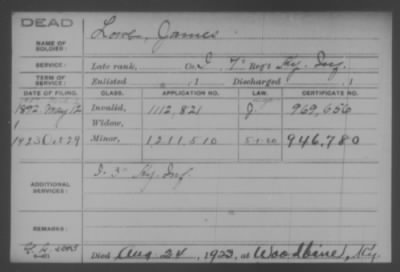 DEAD
NAME OF SOLDIER: Lowe, James
SERVICE: Late rank, Co. I, 7" Reg't Ky. Inf.
TERM OF SERVICE: Enlisted , 1 Discharged , 1
DATE OF FILING. CLASS. APPLICATION NO. LAW. CERTIFICATE NO.
1892 May 12 Invalid, 1112,821 J 969,656
1 Widow,
1923 Oct 29 Minor, 1211,510 5-1-20 946,780
ADDITIONAL SERVICES: I. 3" Ky. Inf.
REMARKS:
Died Aug 24, 1923, at Woodbine, Ky.